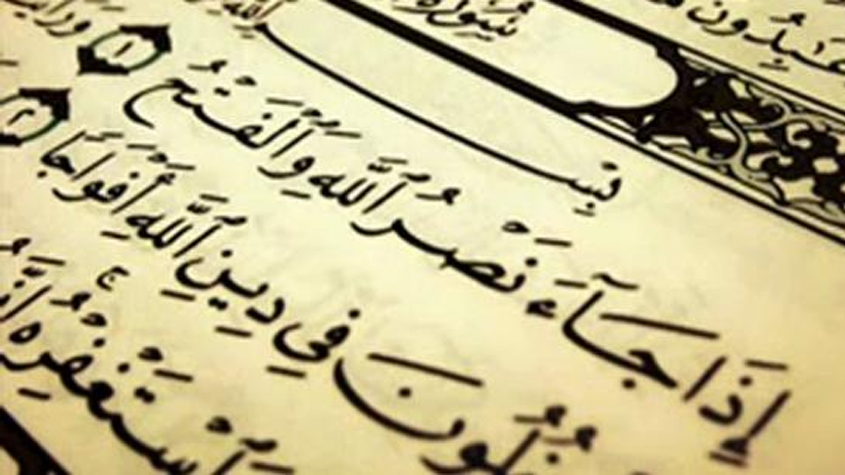 عَٰبِدُونَ
سُورَةُ
بِسْمِ ٱللَّهِ
إِذَا جَآءَ نَصْرُ ٱللَّهِ وَٱلْفَتْحُ ١
فِي دِينِ ٱللَّهِ أَفْوَاجًا ٢
وَٱسْتَغْفِرْهُ